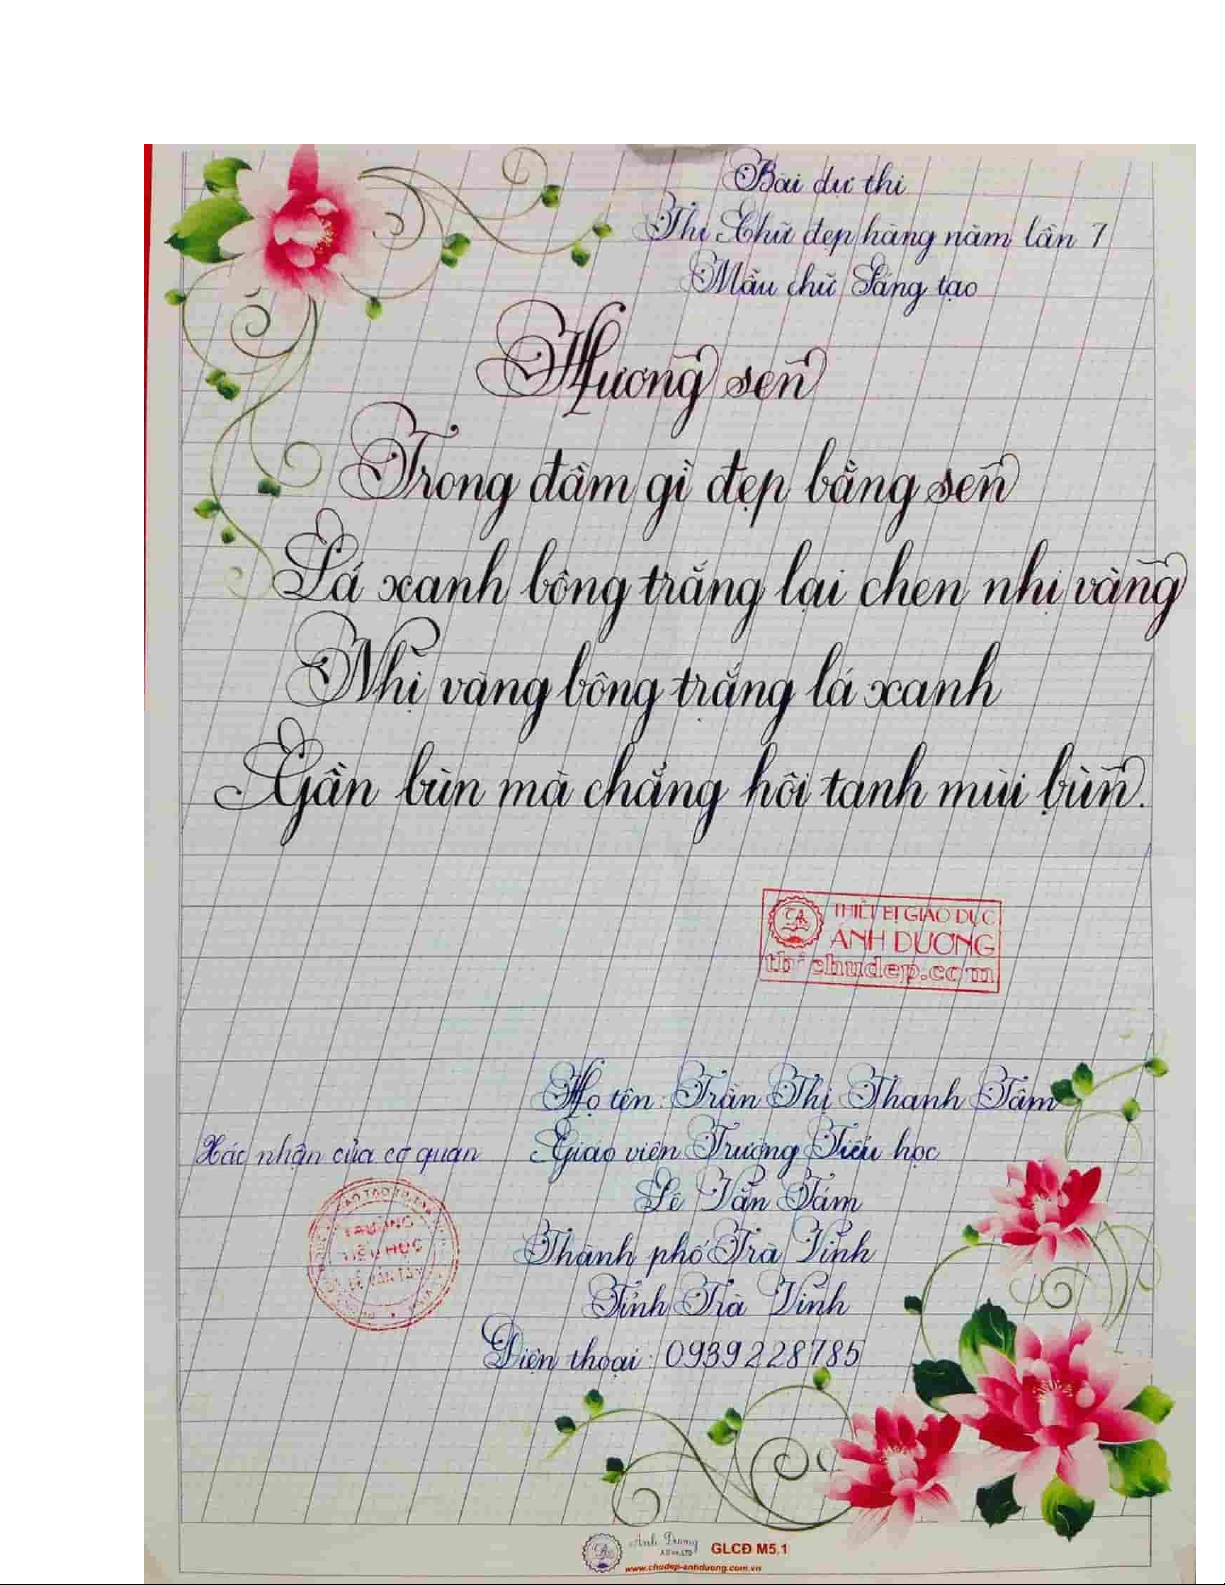 Bài dự thi
Thi Chữ đẹp hàng năm lần 7
Mẫu chữ Sáng tạo
Hương sen
Trong đầm gì đẹp bằng sen
Lá xanh bông trắng lại chen nhị vàng
Nhị vàng bông trắng lá xanh
Gần bùn mà chẳng hôi tanh mùi bùn.
THIẾT BỊ GIÁO DỤC
ÁNH DƯƠNG
thichudep.com
Họ tên: Trần Thị Thanh Tâm
Xác nhận của cơ quan Giáo viên Trường Tiểu học
Lê Văn Tám
Thành phố Trà Vinh
Tỉnh Trà Vinh
Điện thoại: 0939228785
TRƯỜNG
TIỂU HỌC
LÊ VĂN TÁM
Ánh Dương
GLCĐ M5,1
www.chudep-anhduong.com.vn